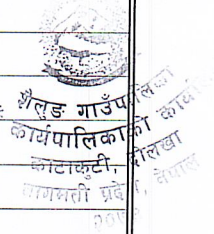 शैलुङ गाउँपालिका
कार्यपालिकाको कार्यालय
काटाकुटी, दोलखा
बागमती प्रदेश, नेपाल